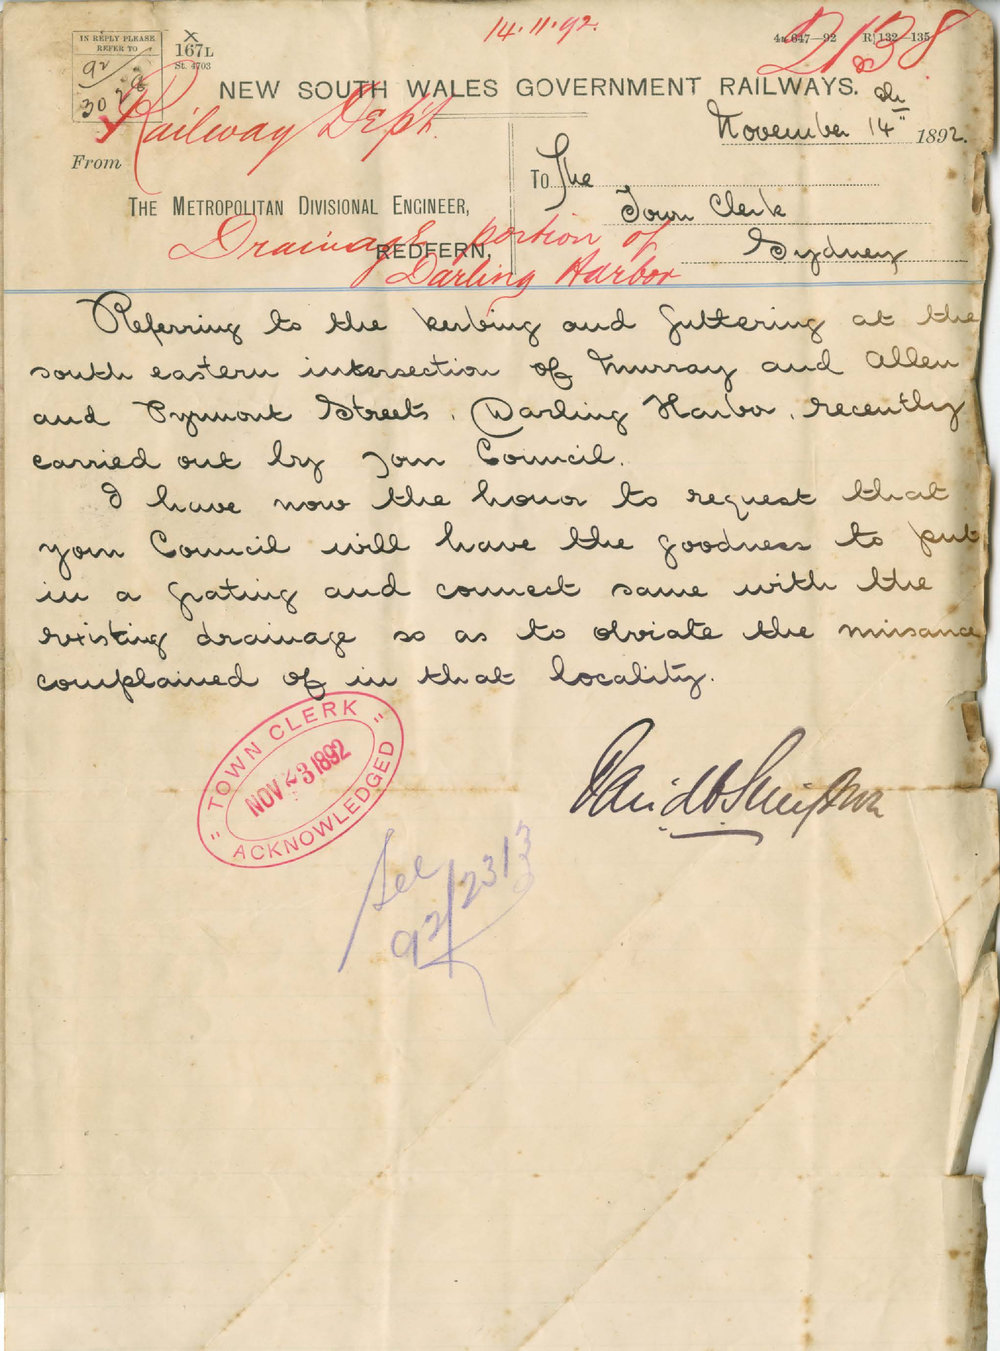 14.11.92.
2138
IN REPLY PLEASE
REFER TO
92/3028
X
167L
St. 4703
4a 647—92 R 132—135
NEW SOUTH WALES GOVERNMENT RAILWAYS.
Railway Dept.
November 14th 1892.
From
THE METROPOLITAN DIVISIONAL ENGINEER,
REDFERN,
To The
Town Clerk
Sydney
Drainage portion of
Darling Harbor
Referring to the kerbing and guttering at the
south eastern intersection of Murray and Allen
and Pyrmont Streets, Darling Harbor, recently
carried out by your Council.
I have now the honor to request that
your Council will have the goodness to put
in a grating and connect same with the
existing drainage so as to obviate the nuisance
complained of in that locality.
"TOWN CLERK"
NOV 23 1892
ACKNOWLEDGED
See
92/2313